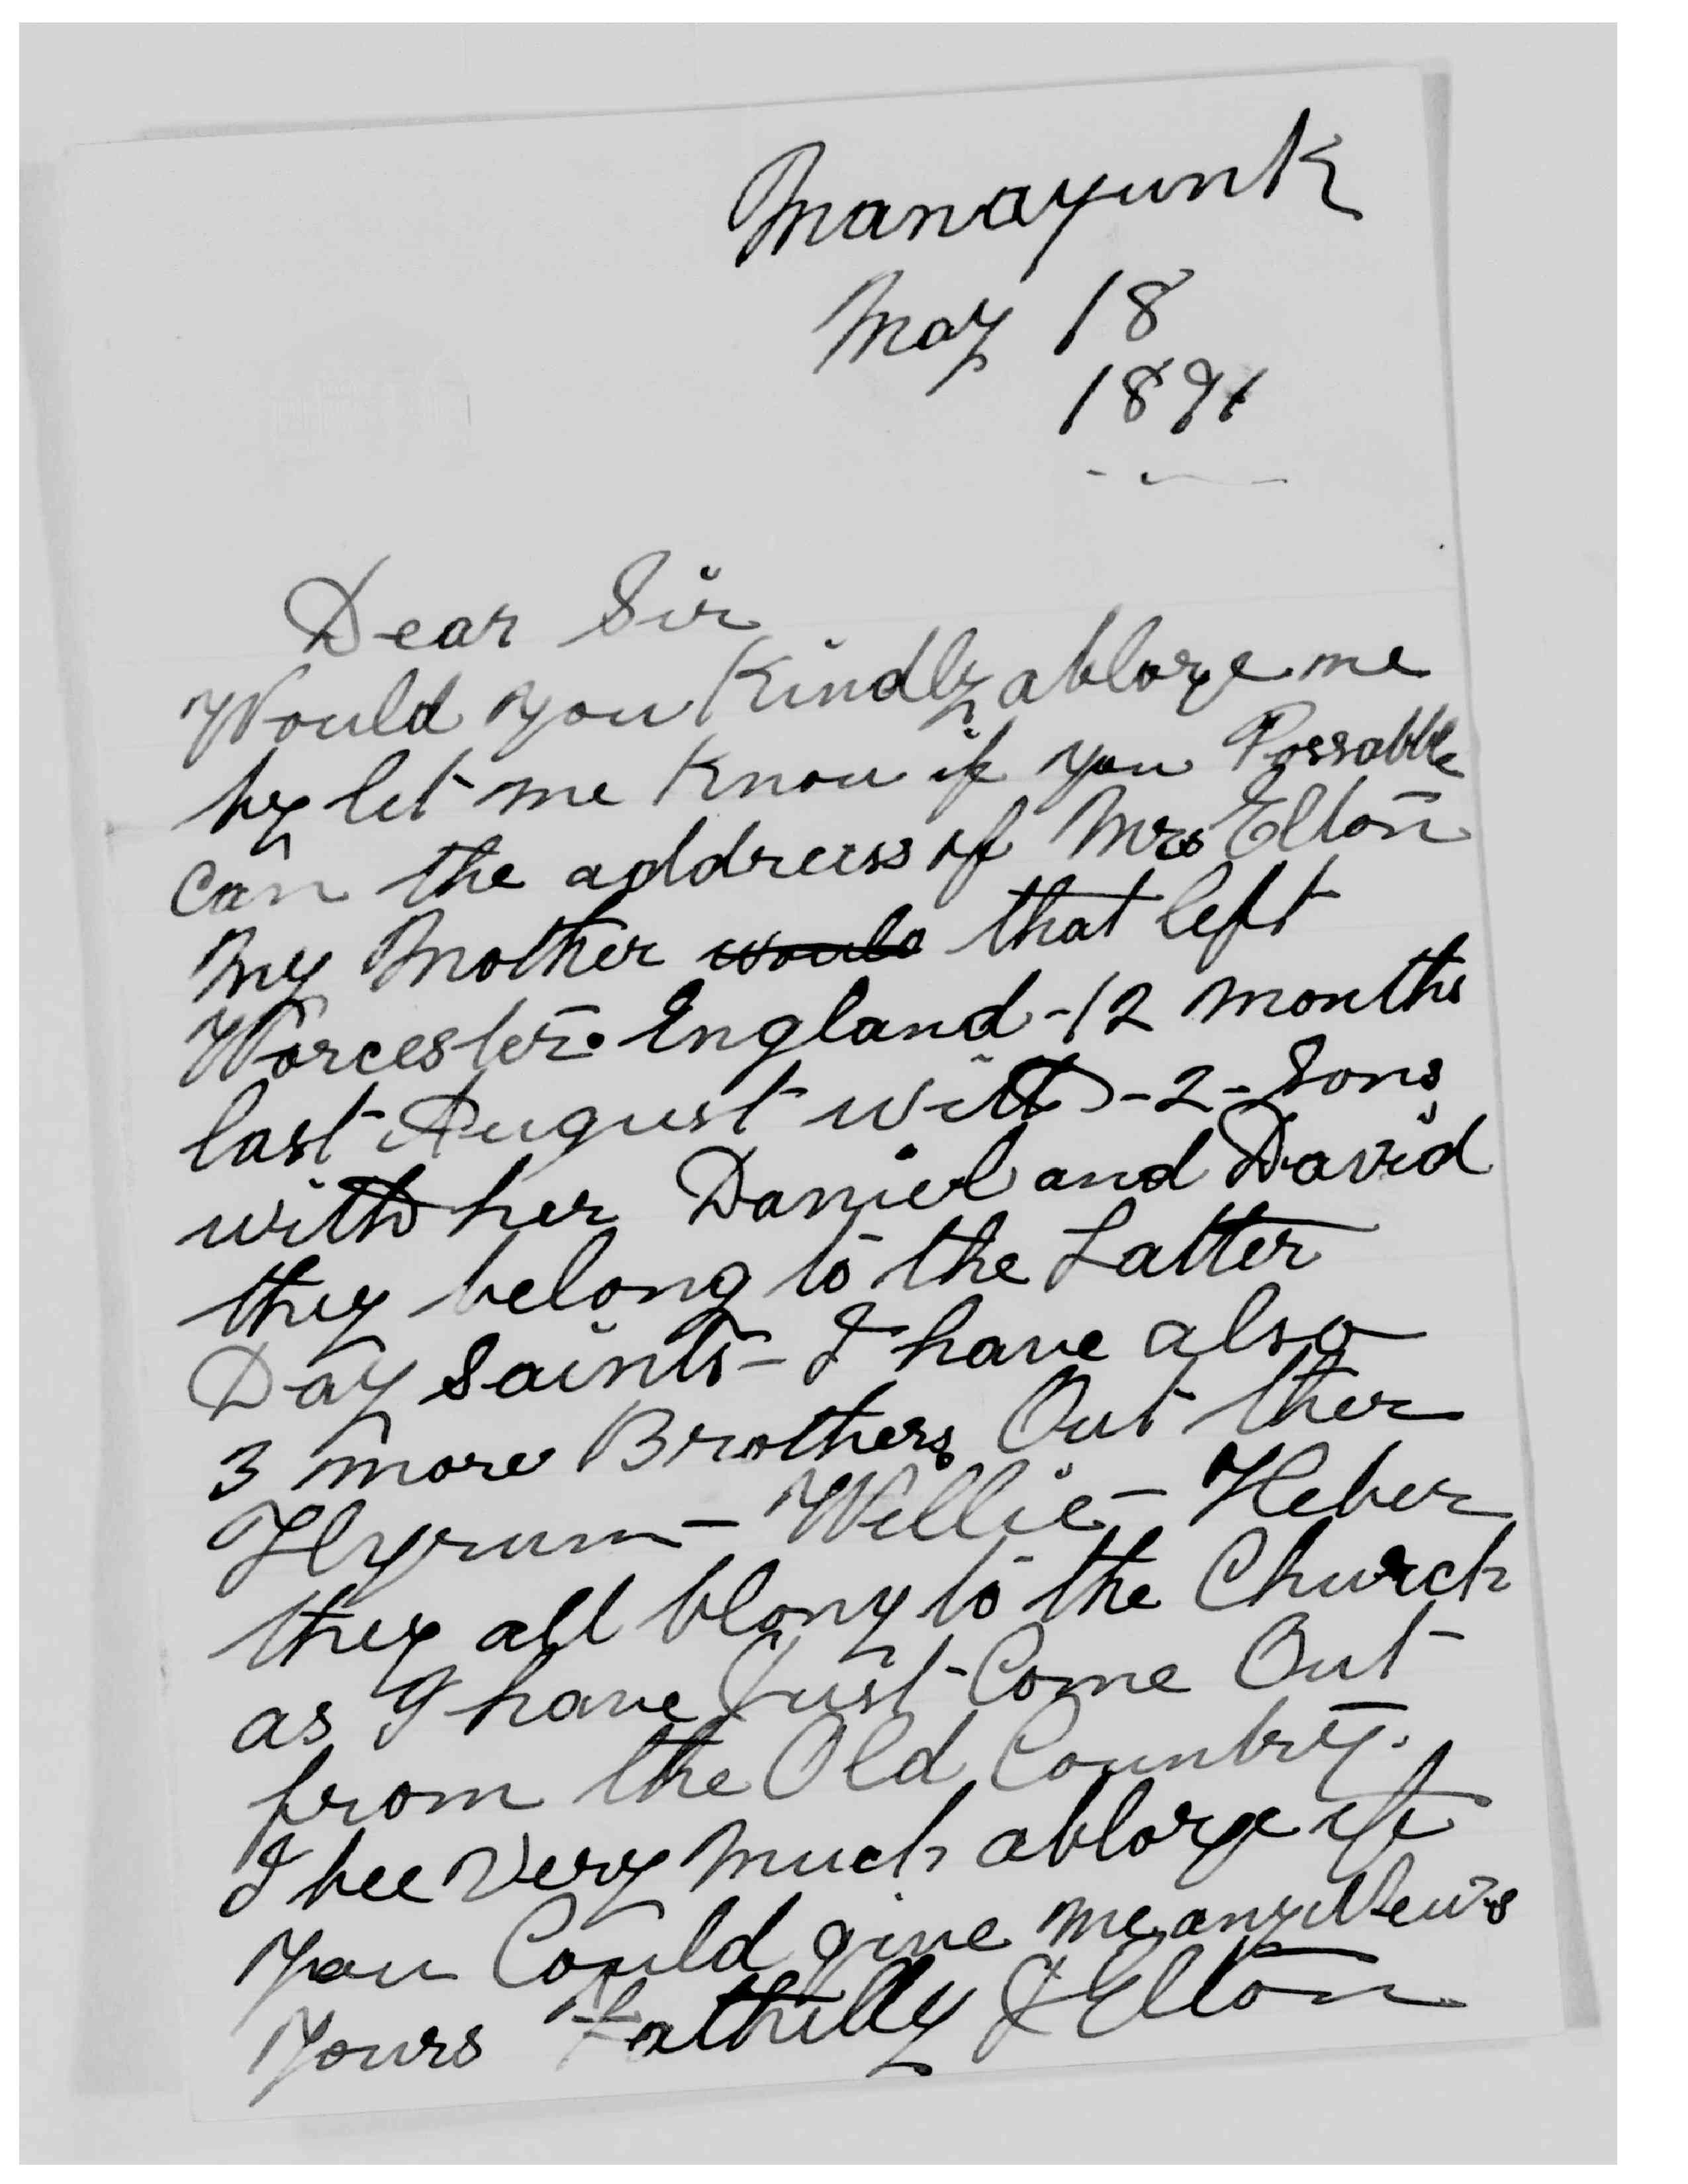 Manayunk
May 18
1891
Dear Sir
Would you Kindly ablorge me
by let me Know if you Possable
Can the address of Mrs Elton
My Mother would that left
Worcester. England - 12 months
last August with - 2 - Sons
with her Daniel and David
they belong to the Latter
Day Saints - I have also
3 more Brothers Out ther
Hyrum - Willie - Heber
they all blong to the Church
as I have Just Come Out
from the Old Country.
I bee Very Much ablorge if
You Could give me any News
Yours Fathilly J Elton